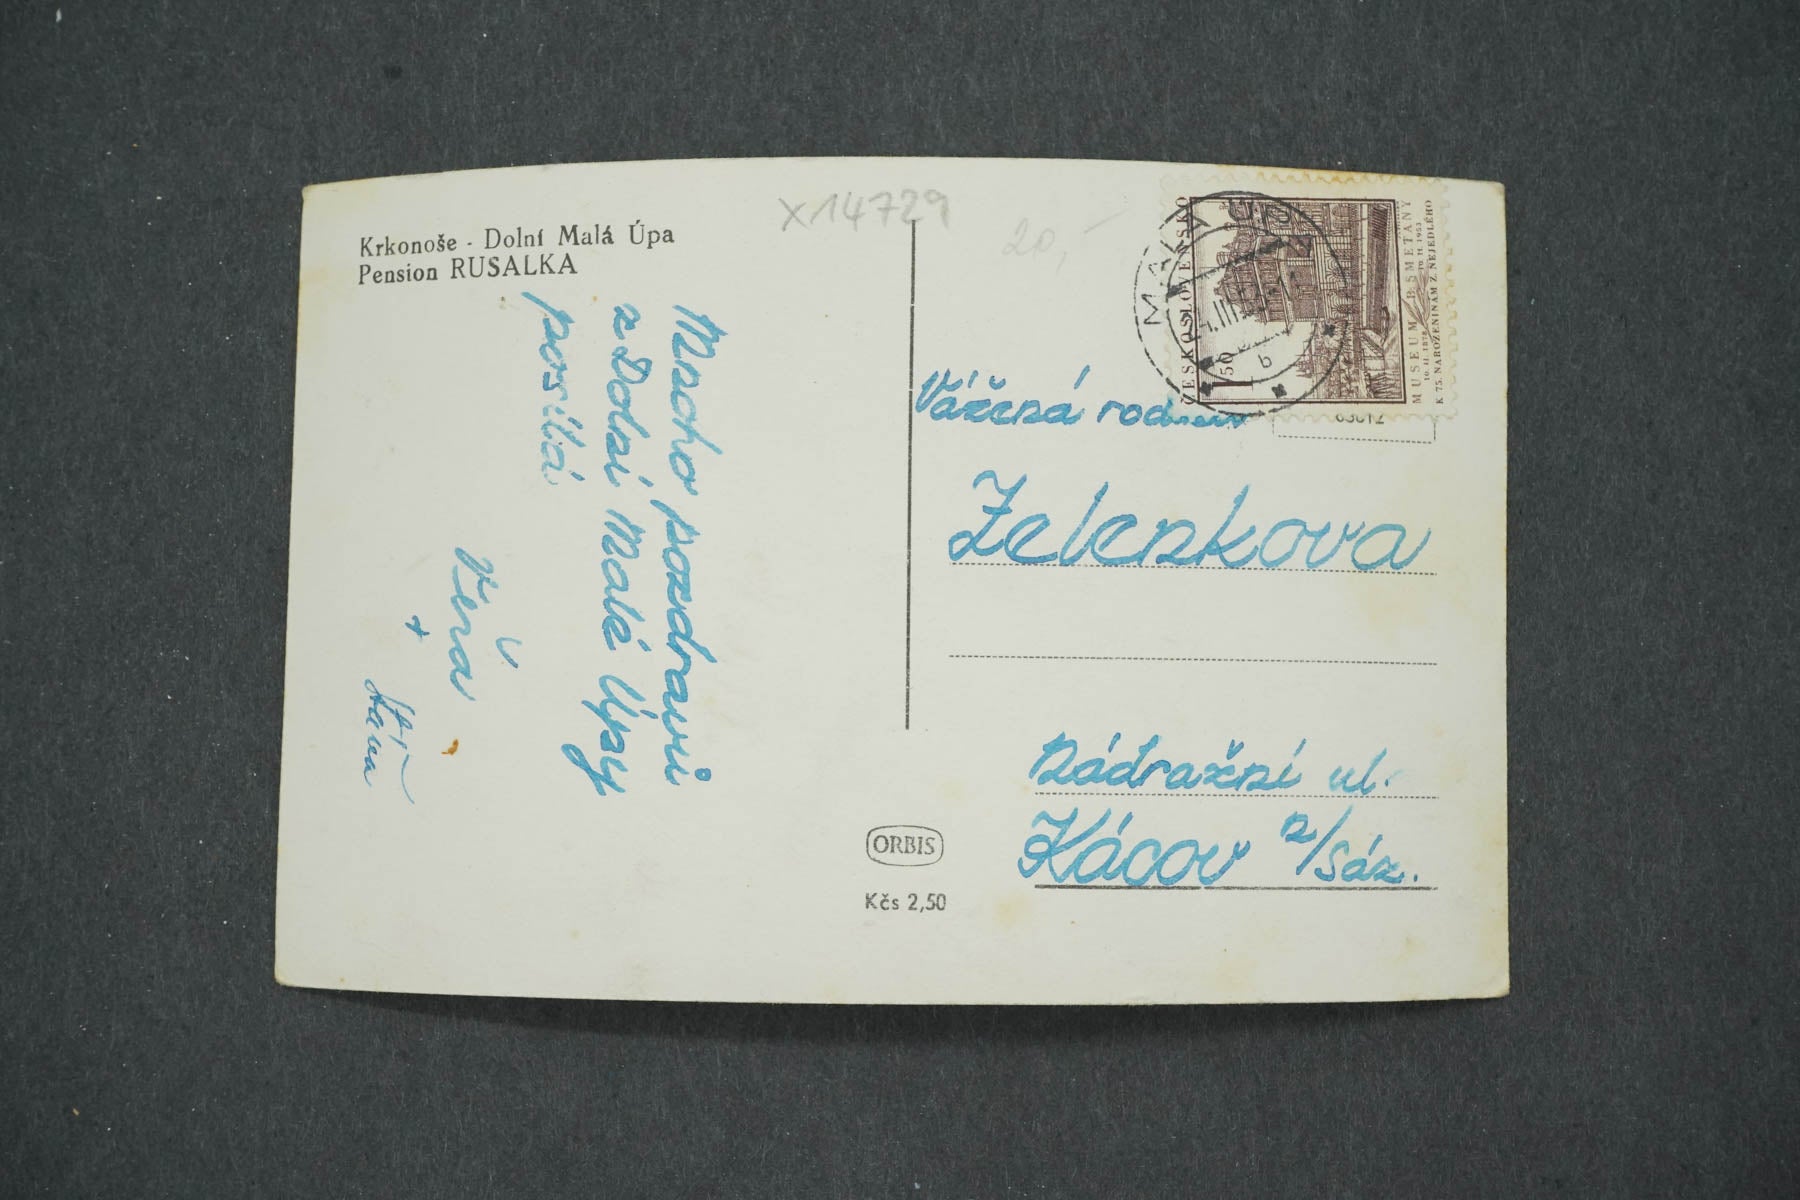 Krkonoše - Dolní Malá Úpa
Pension RUSALKA
X14729
20,-
Mnoho pozdravů
z Dolní Malé Úpy
posílá
Věra
+
ČESKOSLOVENSKO
1
50
MUSEUM B. SMETANY
K 75. NAROZENINÁM Z. NEJEDLÉHO
Vážená
Zelenkova
Nádražní ul.
Kácov n/Sáz.
ORBIS
Kčs 2,50